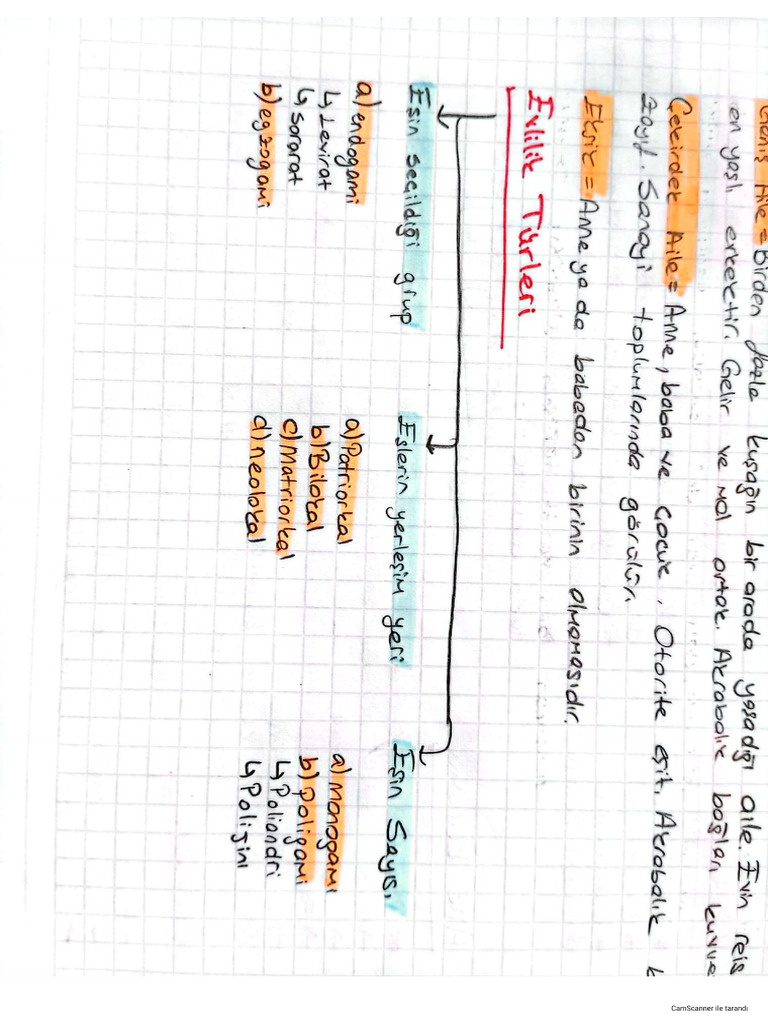 Geniş Aile = Birden fazla kuşağın bir arada yaşadığı aile. Evin reis
en yaşlı erkektir. Gelir ve mal ortak. Akrabalık bağları kuvve
Çekirdek Aile = Anne, baba ve çocuk. Otorite eşit. Akrabalık b
zayıf. Sanayi toplumlarında görülür.
Eksik = Anne ya da babadan birinin olmamasıdır.
Evlilik Türleri
Eşin seçildiği grup
a) endogami
↳ Levirat
↳ sororat
b) egzogami
Eşlerin yerleşim yeri
a) Patriorkal
b) Bilokal
c) Matriorkal
d) neolokal
Eşin Sayısı
a) monogami
b) poligami
↳ Poliandri
↳ Polijini
CamScanner ile tarandı